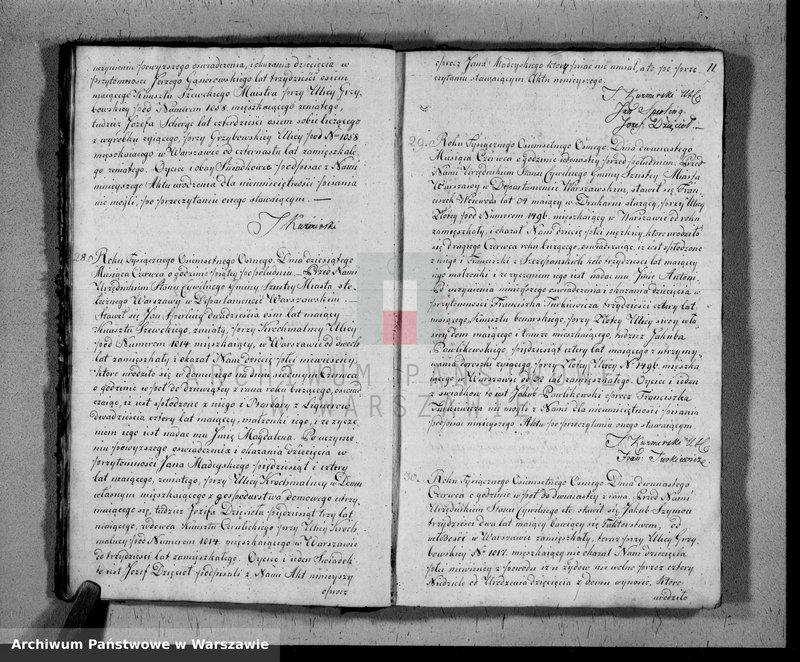 uczynieniu powyższego oświadczenia, i okazania dziecięcia w
przytomności Jerzego Gąsierowskiego lat trzydzieści osiem
maiącego Kunsztu Szewckiego Maistra przy Ulicy Grzy
bowskiey pod Numerem 1058. mieszkaiącego żonatego,
tudzież Jozefa lat czterdzieści osiem sobie liczącego
z wyrobku żyiącego, przy Grzybowskiey Ulicy pod No 1058
mieszkaiącego w Warszawie od czternastu lat zamieszkałe,
go żonatego. Oyciec i obay Swiadkowie podpisać z Nami
ninieyszego Aktu urodzenia dla nieumieiętności pisania
nie mogli, po przeczytaniu onego stawaiącym. —
J Kuźmirski
28. Roku Tysiącznego Osiemsetnego Osmego. Dnia dziesiątego
Miesiąca Czerwca o godzinie piątey po południu. Przed Nami
Urzędnikiem Stanu Cywilnego Gminy Szustey Miasta sto,
łecznego Warszawy w Departamencie Warszawskim
Stawił się Jan Sperling dwadzieścia osm lat maiący
Kunsztu Szewckiego, żonaty, przy Krochmalney Ulicy
pod Numerem 1014. mieszkaiący, w Warszawie od dwoch
lat zamieszkały i okazał Nam dziecię płci niewieściey,
które urodziło się w domu iego na dniu siodmym Czerwca
o godzinie w poł do dziewiątey z rana roku bieżącego, oświad
czaiąc, iż iest spłodzone z niego i Barbary z
dwadzieścia cztery lat maiącey, małżonki iego, i że życze,
niem iego iest nadać mu Jmię Magdalena. Po uczynie
niu powyższego oświadczenia i okazania dziecięcia w
przytomności Jana Madeyskiego pięćdziesiąt i cztery
lat maiącego, żonatego, przy Ulicy Krochmalney w Domu
własnym mieszkaiącego z gospodarstwa domowego utrzy,
muiącego się, tudzież Jozefa Dzięcioła pięćdziesiąt trzy lat
maiącego, wdowca Kunsztu Ciesielskiego przy Ulicy Kroch
malney pod Numerem 1014. mieszkaiącego w Warszawie
od trzydziestu lat zamieszkałego. Oyciec i ieden Swiadek
to iest Jozef Dzięcioł podpisali z Nami Akt ninieyszy
oprocz
11
oprocz Jana Madeyskiego który pisać nie umiał, a to po prze
czytaniu stawaiącym Aktu ninieyszego.
J. Kuźmirski USC
Jan Sperling.
Jozef Dzięcioł. —
29. Roku Tysiącznego Osiemsetnego Osmego. Dnia dwunastego
Miesiąca Czerwca o godzinie iedenastey przed południem. Przed
Nami Urzędnikiem Stanu Cywilnego Gminy Szustey Miasta
Warszawy w Departamencie Warszawskim, stawił się Fran,
ciszek Woiewoda lat 34 maiący w Drukarni służący, przy Ulicy
Złotey pod Numerem 1496. mieszkaiący w Warszawie od roku
zamieszkały, i okazał Nam dziecię płci męzkiey, które urodziło
się drugiego Czerwca roku bieżącego, oświadczaiąc, iż iest spłodzone
z niego i Franciszki z Szczepańskich lat maiącey
iego małżonki i że życzeniem iego iest nadać mu Jmie Antoni.
Po uczynieniu ninieyszego oświadczenia i okazania dziecięcia w
przytomności Franciszka Turkiewicza trzydzieści cztery lat
maiącego, Kunsztu przy Złotey Ulicy swoy wła
sny Dom maiącego i tamże mieszkaiącego, tudzież Jakuba
Pawlikowskiego pięćdziesiąt cztery lat maiącego z utrzymy
wania żyiącego przy Złotey Ulicy No 1496. mieszka
iącego w Warszawie od 30 lat zamieszkałego. Oyciec i ieden
z świadków to iest Jakub Pawlikowski oprocz Franciszka
Turkiewicza nie mogli z Nami dla nieumieiętności pisania
podpisać ninieyszego Aktu po przeczytaniu onego stawaiącym.
J. Kuźmirski USC
Fran. Turkiewicz
30. Roku Tysiącznego Osiemsetnego Osmego. Dnia dwunastego
Czerwca o godzinie w poł do dwunastey z rana. Przed Nami
Urzędnikiem Stanu Cywilnego etc. stawił się Jakub Szymon
trzydzieści dwa lat maiący bawiący się Faktorstwem, od
w Warszawie zamieszkały, teraz przy Ulicy Grzy
bowskiey No 1017. mieszkaiący nie okazał Nam dziecięcia
płci z powodu iż u żydow nie wolno przez cztery
Niedziele od Urodzenia dziecięcia z domu wynosić, które
urodziło
ARCHIWUM PAŃSTWOWE
W WARSZAWIE
Archiwum Państwowe w Warszawie